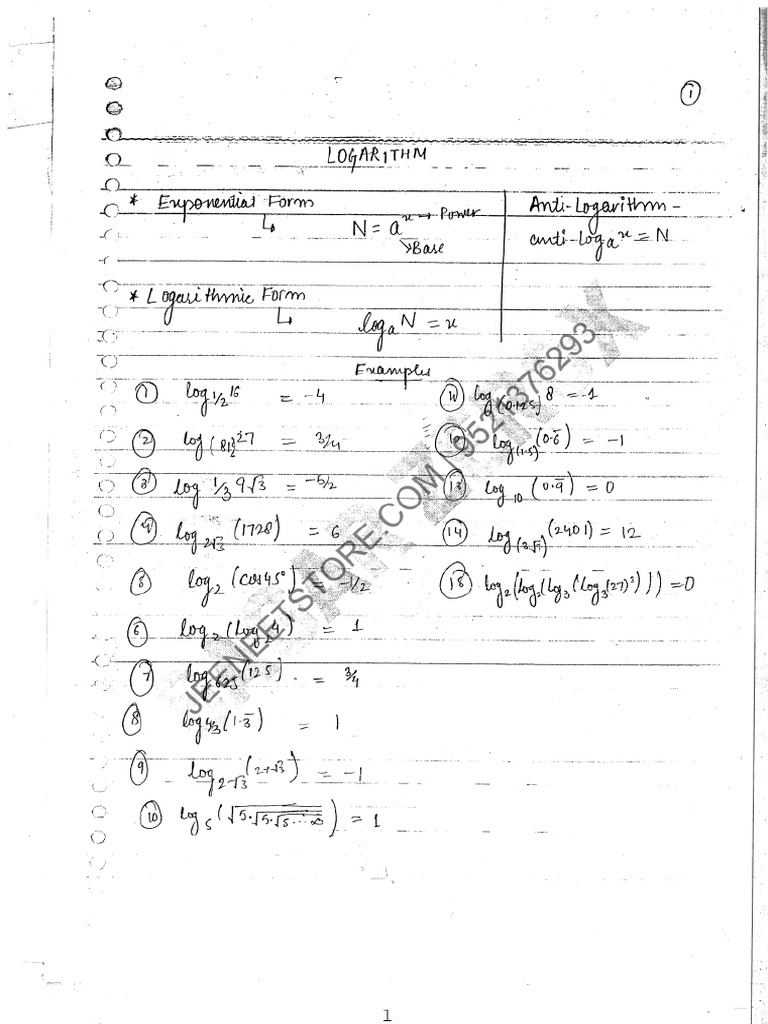 ①
LOGARITHM
* Exponential Form
↳ N = aˣ → Power
↘ Base
Anti-Logarithm -
anti-logₐx = N
* Logarithmic Form
↳ logₐN = x
Examples
① log_{1/2} 16 = -4
② log_{(81)} 27 = 3/4
③ log_{1/3} 9√3 = -5/2
④ log_{2√3} (1728) = 6
⑤ log₂ (cos45°) = -1/2
⑥ log₂ (log₂4) = 1
⑦ log_{625} (125) = 3/4
⑧ log_{4/3} (1.3̄) = 1
⑨ log_{2-√3} (2+√3) = -1
⑩ log₅ (√5.√5.√5...∞) = 1
⑪ log_{(0.125)} 8 = -1
⑫ log_{(1.5)} (0.6̄) = -1
⑬ log₁₀ (0.9̄) = 0
⑭ (2401) = 12
⑮ log₂(log₂(log₃(log₃(27)³))) = 0
JEENEETSTORE.COM | 9521376293
1